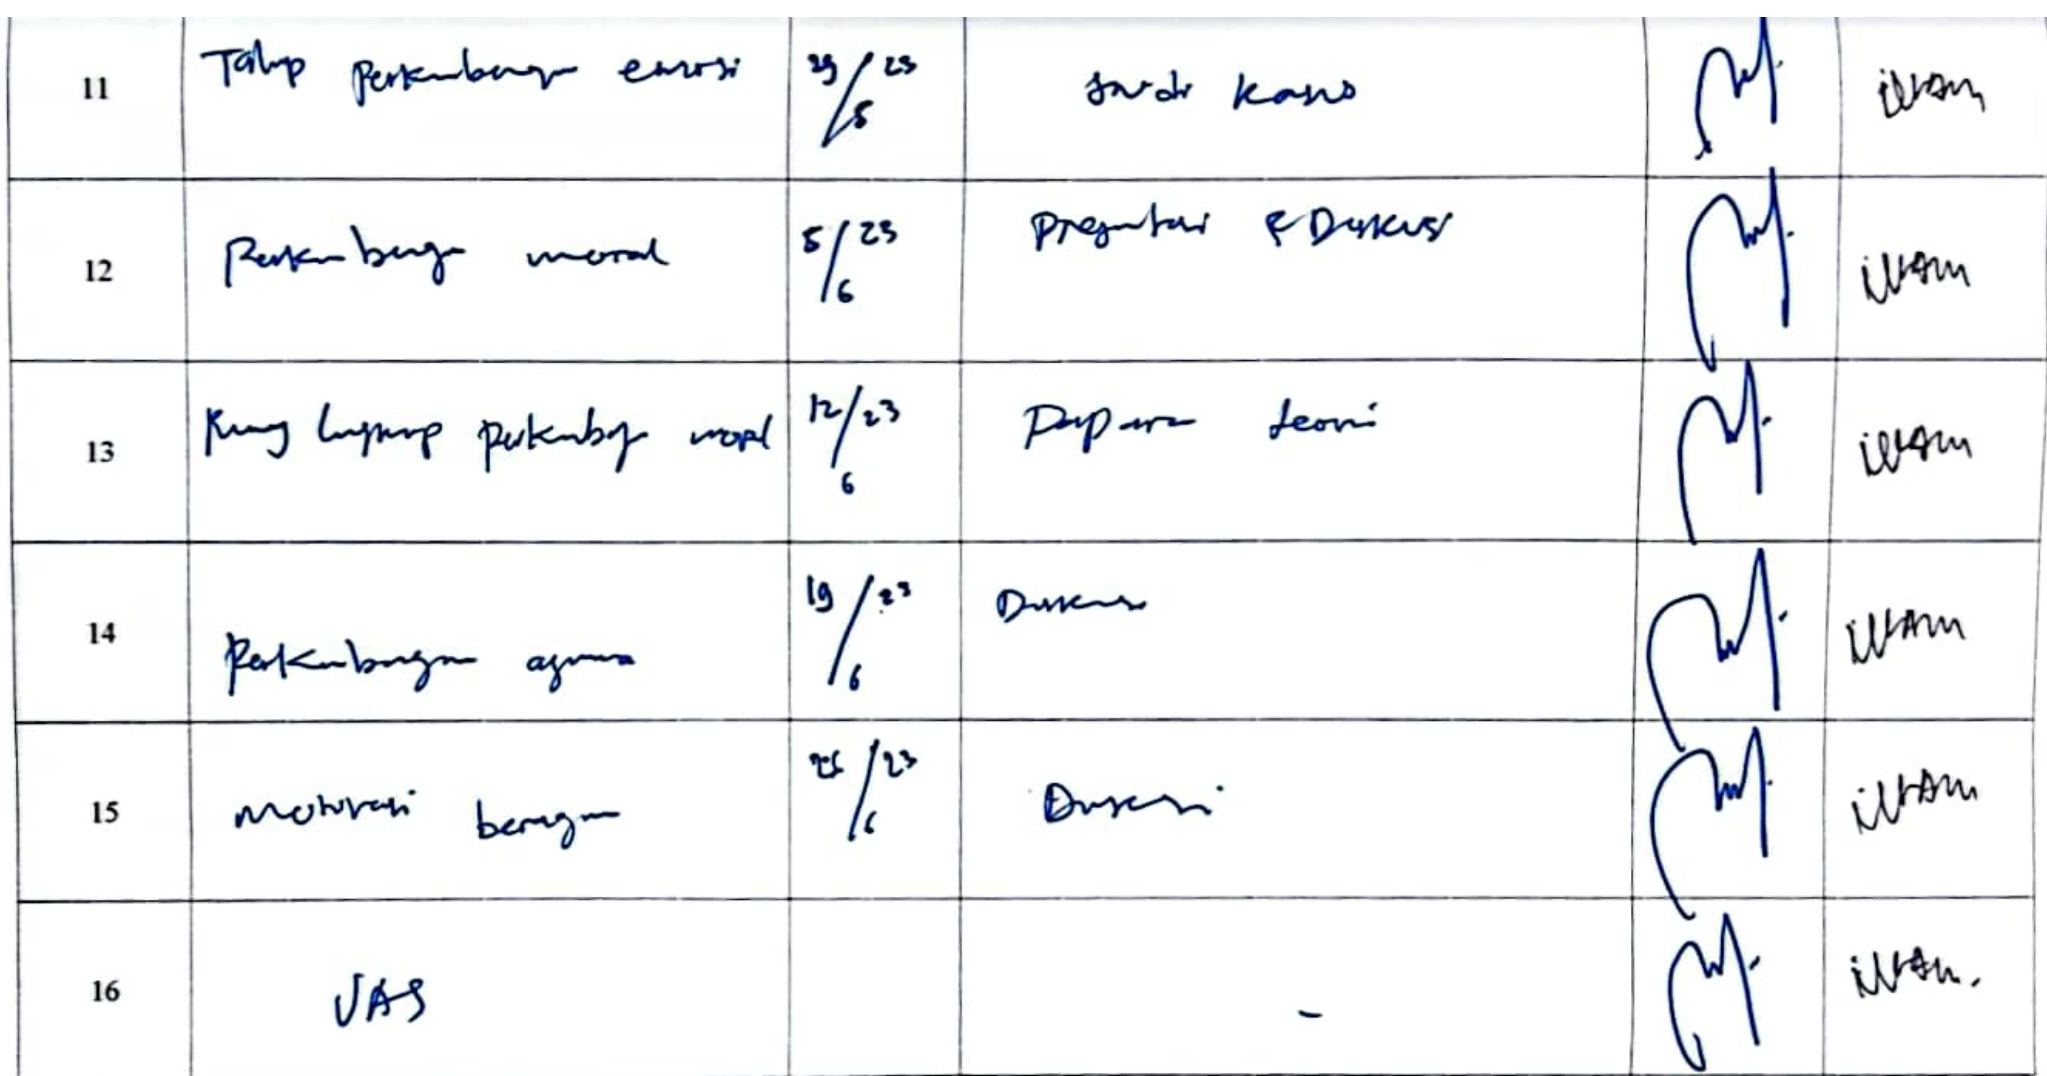 11 Tahap Perkembangan emosi 29/5 23 Studi Kasus
12 Perkembangan moral 5/6 23 Presentasi & Diskusi
13 Ruang lingkup perkembangan moral 12/6 23 Paparan teori
14 Perkembangan agama 19/6 23 Diskusi
15 Motivasi beragama 26/6 23 Diskusi
16 UAS -